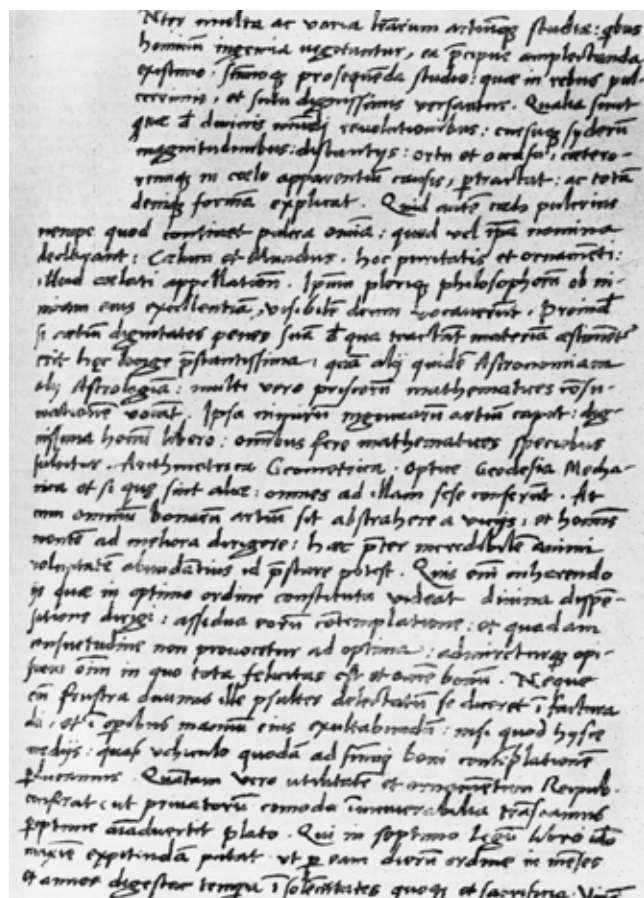 Nter multa ac varia lr̃arum artiuq̃ studia: qbus
hominũ ingenia vegetantur, ea p̃cipue amplectenda
existimo: sum̃oq̃ prosequẽda studio: quae in rebus pul-
cerrimis, et scitu dignissimis versantur. Qualia sunt
quae de divinis mũdi revolutionibus: cursuq̃ syderũ
magnitudinibus: distantijs: ortu et occasu, caetero-
rumq̃ in coelo apparentium causis, ptractat: ac totã
deniq̃ formã explicat. Quid autẽ caelo pulcrius
nempe quod continet pulcra omia: quod vel ip̃a nomina
declarant: Caelum et Mundus. hoc puritatis et ornamẽti:
illud caelati appellatioñ. Ipsum pleriq̃ philosophorũ ob ni-
miam eius excellentiã, visibilẽ deum vocaverũt. Proinde
si artiũ dignitates penes suã de qua tractant materiã aestiment
erit hęc longe p̃stantissima, quã alij quidẽ Astronomiam
alij Astrologiã: multi vero priscorũ mathematices cõsu-
mationẽ vocãt. Ipsa nimirũ ingenuarũ artiũ caput: dig-
nissima homĩe libero: omnibus fere mathematices speciebus
fulcitur. Arithmetica Geometrica. Optice Geodesia Mecha-
nica et si quę sint aliae: omnes ad illam sese conferũt. At
cum omniũ bonarũ artiũ sit abstrahere a vicijs: et hominis
mentẽ ad meliora dirigere: haec p̃ter incredibilẽ animi
voluptatẽ abundãtius id p̃stare potest. Quis em̃ inhaerendo
ijs quae in optimo ordine constituta videat divina dispẽ-
satione dirigi: assidua eorũ cõtemplatione: et quadam
consuetudine non provocetur ad optima: admireturq̃ opi-
ficem oĩm in quo tota felicitas est et omẽ bonũ. Neque
em̃ frustra divinus ille psaltes delectatũ se diceret ĩ factura
dei, et ĩ operibus manuũ eius exultabundũ: nisi quod hysce
medijs: quasi vehiculo quodã ad sum̃i boni contẽplationẽ
pducamur. Quantam vero utilitatẽ et ornamentum Reipub.
conferat (ut privatorũ comoda ĩnumerabilia trãseamus
poptime aĩadvertit plato. Qui in septimo Legũ libro ideo
maxime expetendã putat. ut p eam dierũ ordine in mẽses
et annos digesta tempora ĩ solẽnitates quoq̃ et sacrificia.